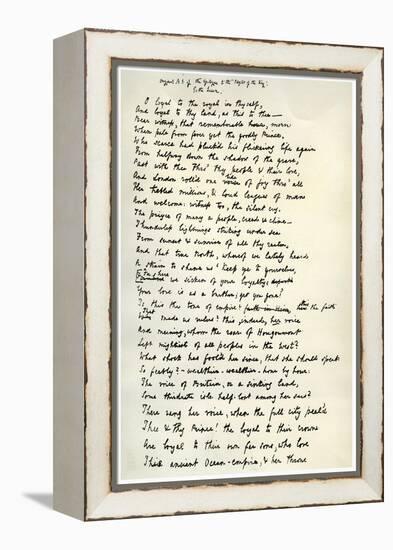 Original M.S. of the Epilogue to the "Idylls of the King".
To the Queen.
O loyal to the royal in thyself,
And loyal to thy land, as this to thee—
Bear witness, that rememberable hour, morn
When pale from fever yet the goodly Prince,
Who scarce had pluck'd his flickering life again
From halfway down the shadow of the grave,
Past with thee thro' thy people & their love,
And London roll'd one tide of joy thro' all
Her trebled millions, & loud leagues of man
And welcome: witness too, the silent cry,
The prayer of many a people, creed & clime—
Thunderless lightnings striking under sea
From sunset & sunrise of all thy realm,
And that true North, whereof we lately heard
A strain to shame us 'keep ye to yourselves,
So loyal we sicken of your loyalty,
Your love is as a brother's, get you gone!'
Is this the tone of empire? here the faith
That made us rulers? this, indeed, her voice
And meaning, whom the roar of Hougoumont
Left mightiest of all peoples in the west?
What shock has fool'd her since, that she should speak
So feebly?— wealthier— wealthier— hour by hour:
The voice of Britain, or a sinking land,
Some third-rate isle half-lost among her seas?
There rang her voice, when the full city peal'd
Thee & thy Prince! the loyal to their crown
Are loyal to their own far sons, who love
This ancient Ocean-empire, & her throne